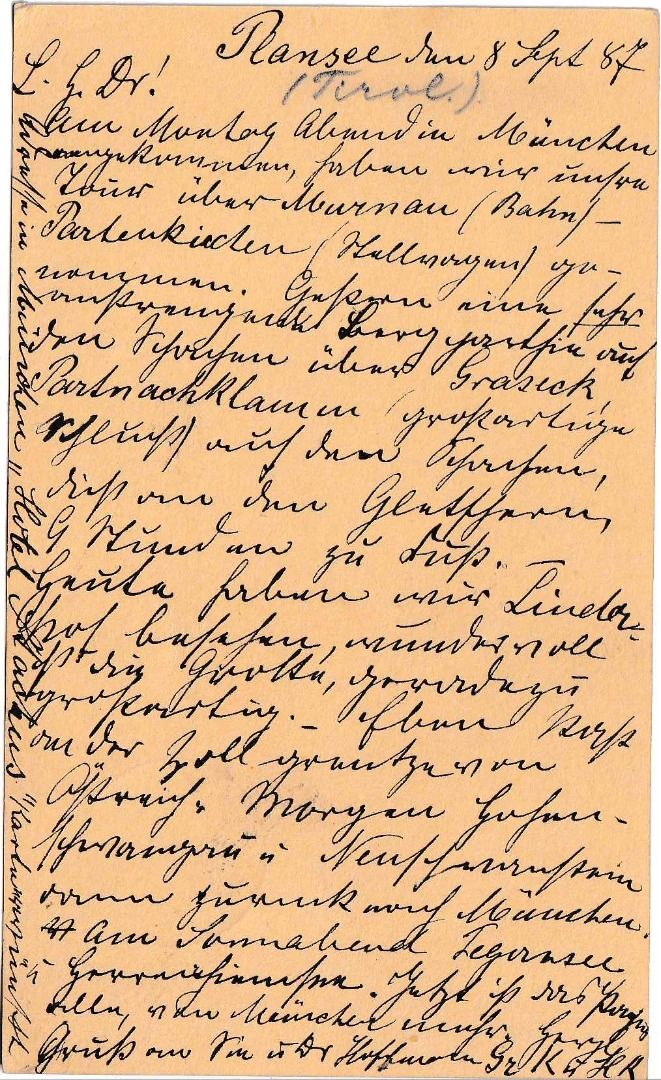 Plansee den 8 Sept 87
(Tirol.)
L. H. Dr!
Am Montag Abend in München
angekommen, haben wir unsre
Tour über Murnau (Bahn) –
Partenkirchen (Stellwagen) ge-
nommen. Gestern eine sehr
anstrengende Bergparthie auf
den Schachen über Graseck,
Partnachklamm (großartige
Schlucht) auf den Schachen,
dicht an den Gletschern,
9 Stunden zu Fuß. –
Heute haben wir Linder-
hof besehen, wundervoll
ist die Grotte, geradezu
großartig. – Eben Rast
an der Zollgrentze von
Östreich. Morgen Hohen-
schwangau u Neuschwanstein
dann zurück nach München.
Am Sonnabend Tegernsee
u Herrenchiemsee. Jetzt ist das
alle, von München mehr. Herzl
Gruß an Sie u Dr Hoffmann Gr K u H K
Adresse in München "Hotel Stachus"